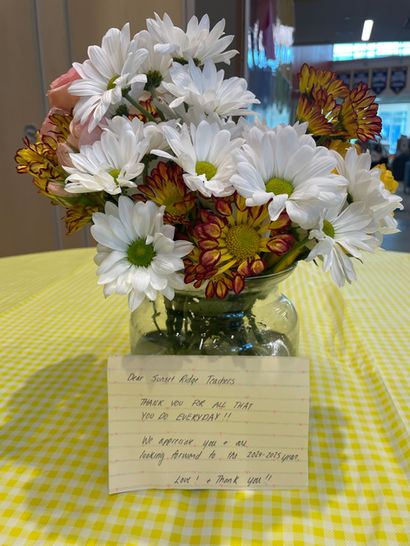 Dear Sunset Ridge Teachers
THANK YOU FOR ALL THAT
YOU DO EVERYDAY!!
We appreciate you + are
looking forward to the 2024-2025 year.
Love! + Thank you!!